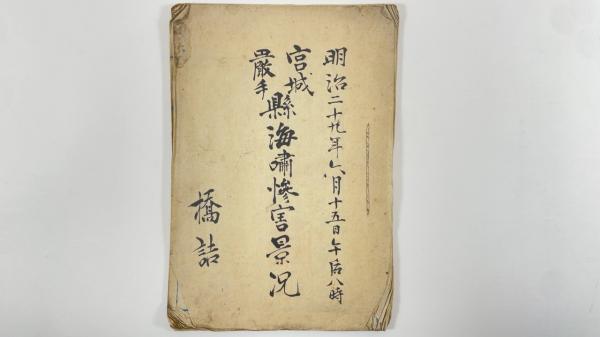 明治二十九年六月十五日午后八時
宮城
巖手
縣海嘯惨害景况
橋詰